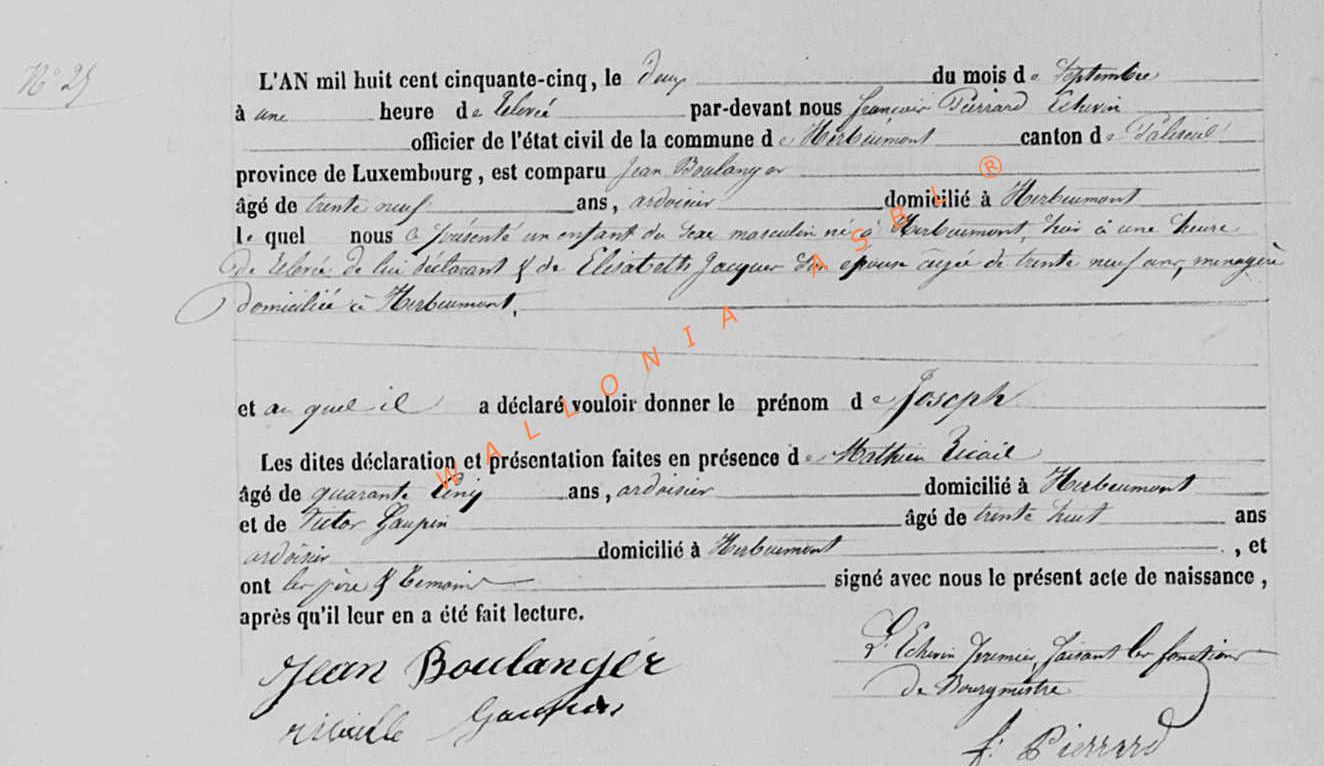 N° 25
L'AN mil huit cent cinquante-cinq, le deux du mois de Septembre
à une heure de relevée par-devant nous françois Pierrard Echevin
officier de l'état civil de la commune de Herbeumont canton de Paliseul
province de Luxembourg, est comparu Jean Boulanger
âgé de trente neuf ans, ardoisier domicilié à Herbeumont
le quel nous a présenté un enfant du Sexe masculin né à Herbeumont, hier à une heure
de relevée de lui déclarant & de Elisabeth Jacques Son epouse agée de trente neuf ans, menagère
domiciliée à Herbeumont,
et au quel il a déclaré vouloir donner le prénom de Joseph
Les dites déclaration et présentation faites en présence de Mathieu
âgé de quarante Cinq ans, ardoisier domicilié à Herbeumont
et de Victor Gaupin âgé de trente huit ans
ardoisier domicilié à Herbeumont, et
ont les père & temoins signé avec nous le présent acte de naissance,
après qu'il leur en a été fait lecture.
L'Echevin premier, faisant les fonctions
de Bourgmestre
Jean Boulanger
Gaupin
f: Pierrard
WALLONIA ASBL ®